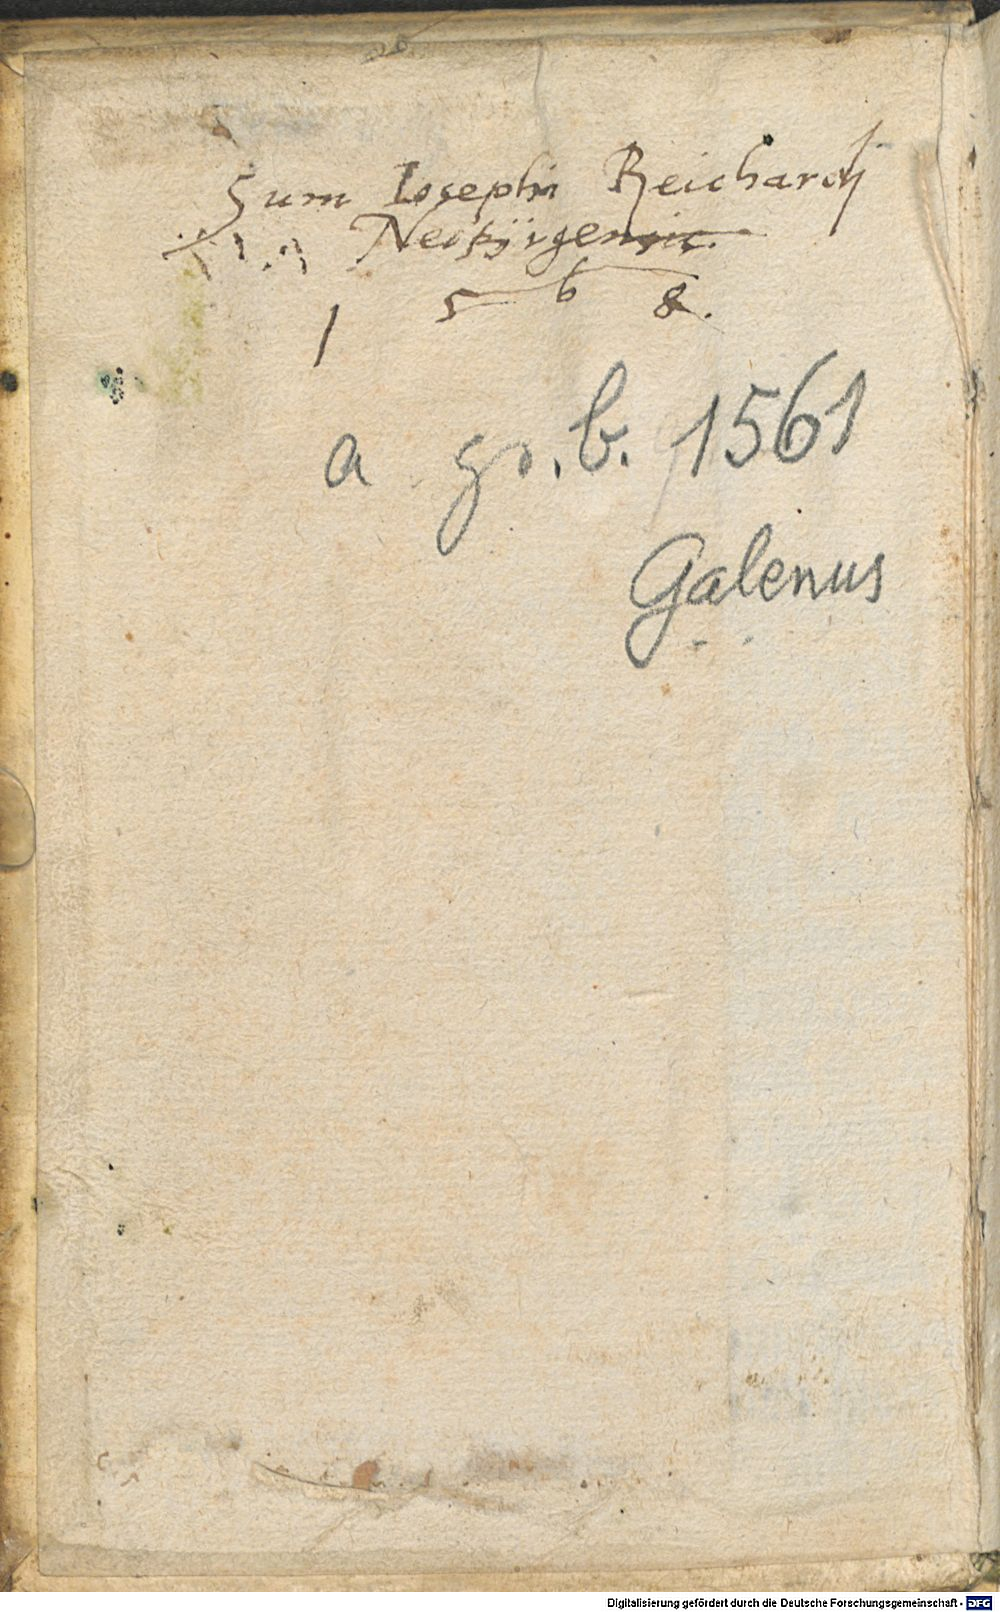 Sum Iosephi Reichardi
1 5 6 8.
a gr. b. 1561
Galenus
Digitalisierung gefördert durch die Deutsche Forschungsgemeinschaft - DFG